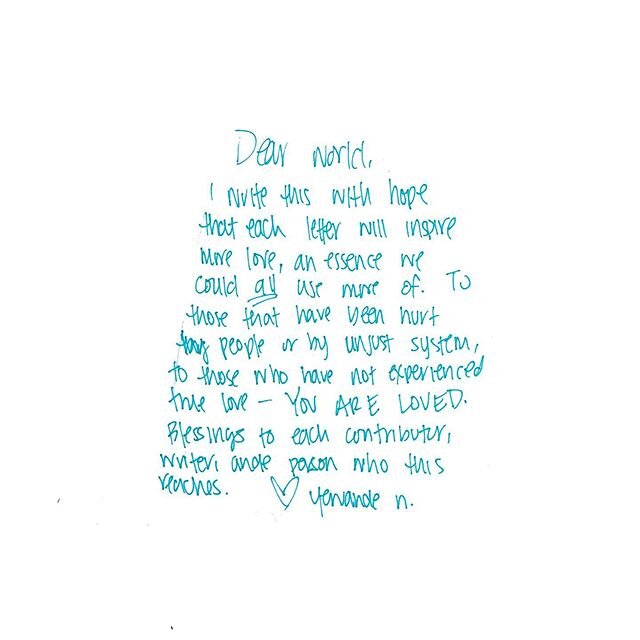 Dear world,
I write this with hope
that each letter will inspire
more love, an essence we
could all use more of. To
those that have been hurt
people or by unjust system,
to those who have not experienced
true love - YOU ARE LOVED.
Blessings to each contributor,
writer, ande person who this
reaches. ♡ Yewande n.